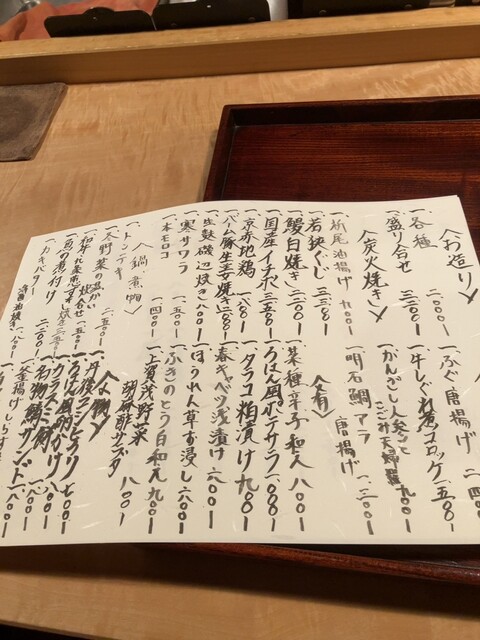 〈お造り〉
一、各種 二、〇〇〇ー
一、盛り合せ
〈炭火焼き〉
一、栃尾油揚げ 九〇〇ー
一、若狭ぐじ 三、三五〇ー
一、鰻白焼き 三、二〇〇ー
一、国産イチボ 三、三五〇ー
一、京赤地鶏 一、八〇〇ー
一、バーム豚生姜焼き
一、生麩磯辺焼き 八〇〇ー
一、寒サワラ 一、五〇〇ー
一、本モロコ 一、四〇〇ー
〈鍋、煮物〉
一、トンテキ
一、冬野菜の温かい炊合せ 二、五〇〇ー
一、魚の煮付け 二、五〇〇ー
一、カキバター醤油焼き 一、八〇〇ー
一、ふぐ唐揚げ
一、牛しぐれ煮コロッケ 一、五〇ー
一、がんこごみ天婦羅 九〇〇ー
一、明石鯛アラ唐揚げ 一、三〇〇ー
〈肴〉
一、菜種辛子和え 八〇〇ー
一、ろはん風ポテサラ 一、〇〇〇ー
一、タラコ粕漬け 九〇〇ー
一、春キャベツ浅漬け 六〇〇ー
一、ほうれん草お浸し 六〇〇ー
一、ふきのとう白和え 九〇〇ー
一、上賀茂野菜胡麻酢サラダ 八〇〇ー
〈〆物〉
一、丹後コシヒカリ 七〇〇ー
一、ろはん風卵かけ 八〇〇ー
一、カラスミ 一、八〇〇ー
一、名物鯖サンド 一、八〇〇ー
一、釜揚げしらす